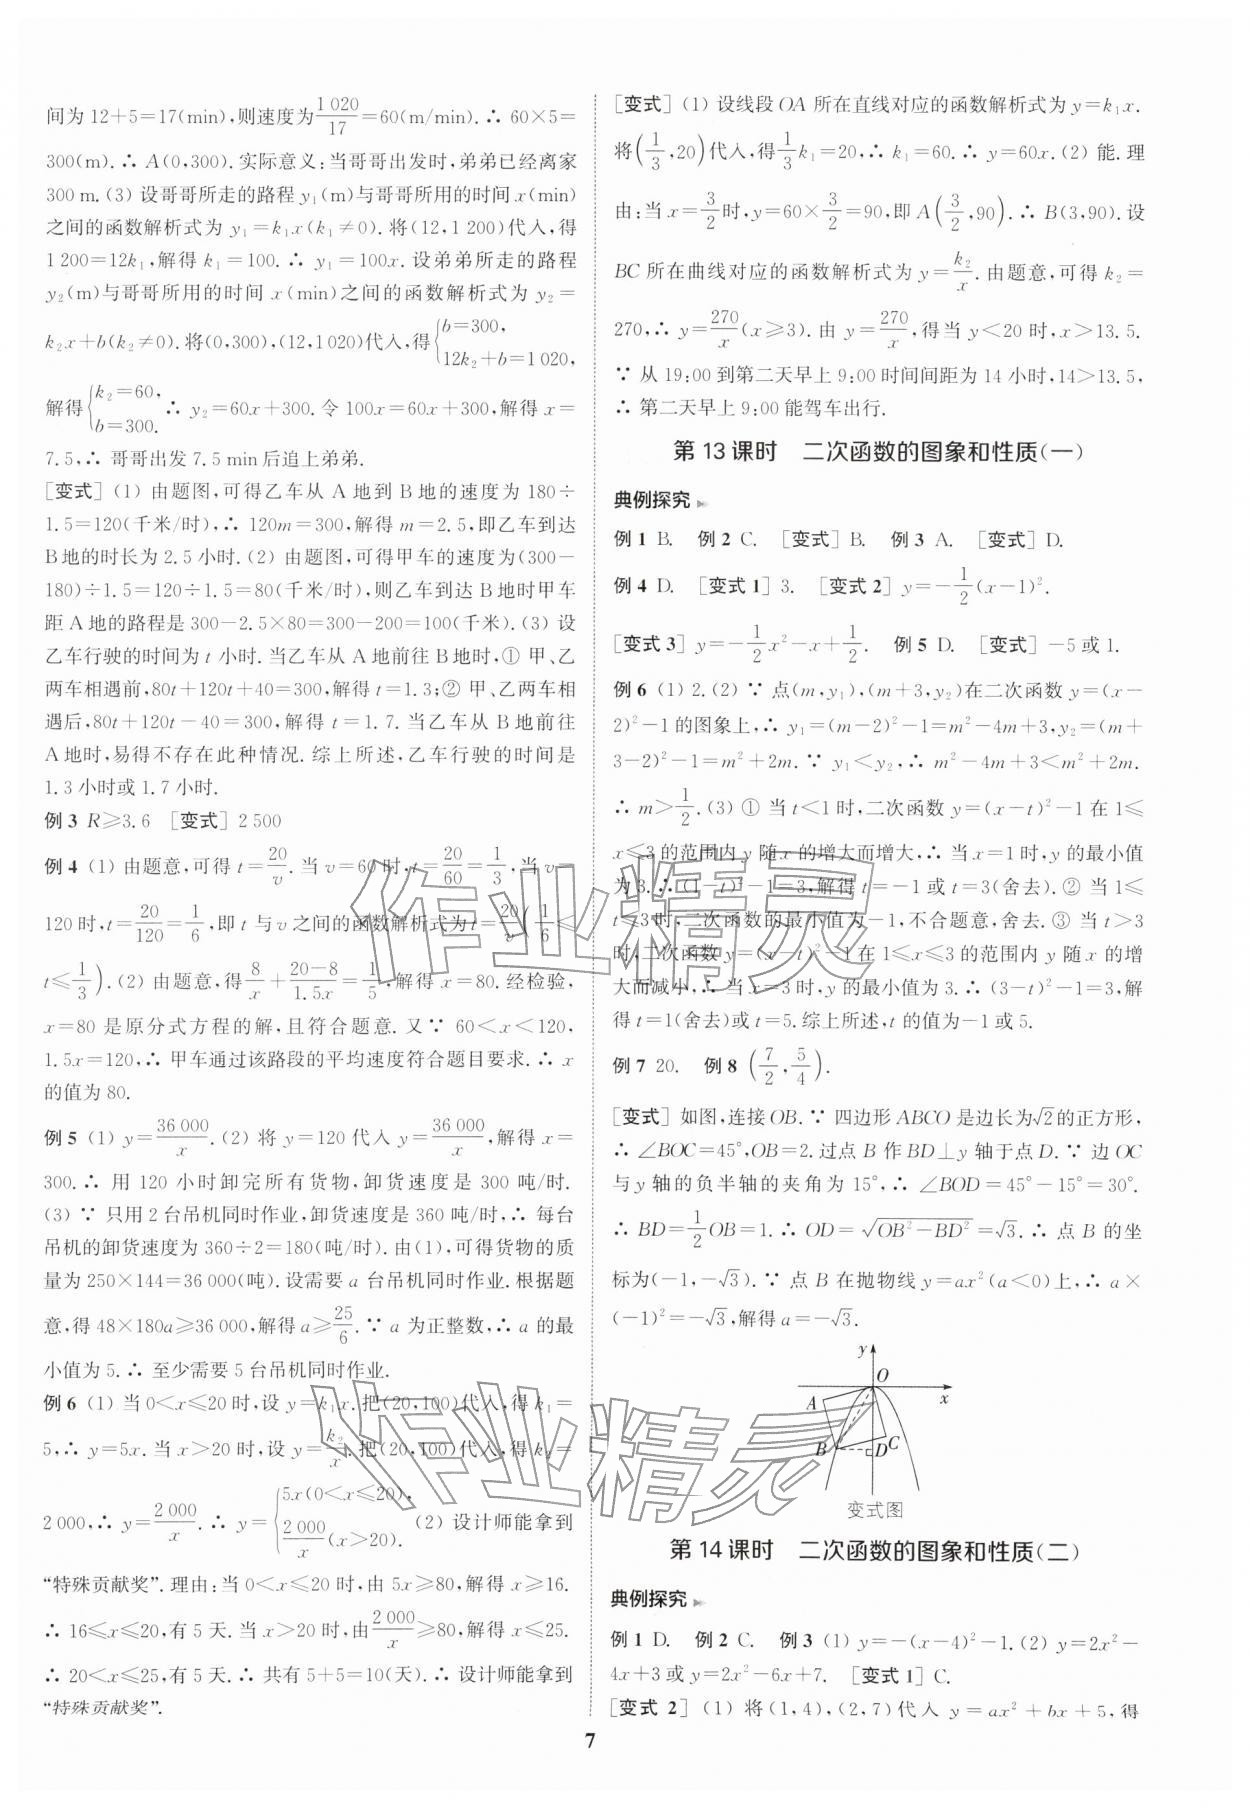 间为 12+5=17(min),则速度为1 020/17=60(m/min).∴ 60×5=
300(m).∴ A(0,300).实际意义:当哥哥出发时,弟弟已经离家
300 m.(3) 设哥哥所走的路程 y₁(m)与哥哥所用的时间 x(min)
之间的函数解析式为 y₁=k₁x(k₁≠0).将(12,1 200)代入,得
1 200=12k₁,解得 k₁=100.∴ y₁=100x.设弟弟所走的路程
y₂(m)与哥哥所用的时间 x(min)之间的函数解析式为 y₂=
k₂x+b(k₂≠0).将(0,300),(12,1 020)代入,得{b=300, 12k₂+b=1 020,
解得{k₂=60, b=300. ∴ y₂=60x+300.令 100x=60x+300,解得 x=
7.5,∴ 哥哥出发 7.5 min后追上弟弟.
[变式] (1) 由题图,可得乙车从 A 地到 B 地的速度为 180÷
1.5=120(千米/时),∴ 120m=300,解得 m=2.5,即乙车到达
B地的时长为 2.5 小时.(2) 由题图,可得甲车的速度为(300−
180)÷1.5=120÷1.5=80(千米/时),则乙车到达 B 地时甲车
距 A 地的路程是 300−2.5×80=300−200=100(千米).(3) 设
乙车行驶的时间为 t 小时.当乙车从 A 地前往 B 地时,① 甲、乙
两车相遇前,80t+120t+40=300,解得 t=1.3;② 甲、乙两车相
遇后,80t+120t−40=300,解得 t=1.7.当乙车从 B 地前往
A 地时,易得不存在此种情况.综上所述,乙车行驶的时间是
1.3 小时或 1.7 小时.
例 3 R≥3.6 [变式] 2 500
例 4 (1) 由题意,可得 t=20/v.当 v=60 时,t=20/60=1/3,当 v=
120 时,t=20/120=1/6,即 t 与 v 之间的函数解析式为 t=20/v(1/6≤
t≤1/3).(2) 由题意,得8/x+20−8/1.5x=1/5,解得 x=80.经检验,
x=80 是原分式方程的解,且符合题意.又∵ 60<x<120,
1.5x=120,∴ 甲车通过该路段的平均速度符合题目要求.∴ x
的值为 80.
例 5 (1) y=36 000/x.(2) 将 y=120 代入 y=36 000/x,解得 x=
300.∴ 用 120 小时卸完所有货物,卸货速度是 300 吨/时.
(3) ∵ 只用 2 台吊机同时作业,卸货速度是 360 吨/时,∴ 每台
吊机的卸货速度为 360÷2=180(吨/时).由(1),可得货物的质
量为 250×144=36 000(吨).设需要 a 台吊机同时作业.根据题
意,得 48×180a≥36 000,解得 a≥25/6.∵ a 为正整数,∴ a 的最
小值为 5.∴ 至少需要 5 台吊机同时作业.
例 6 (1) 当 0<x≤20 时,设 y=k₁x.把(20,100)代入,得 k₁=
5,∴ y=5x.当 x>20 时,设 y=k₂/x.把(20,100)代入,得 k₂=
2 000,∴ y=2 000/x.∴ y={5x(0<x≤20), 2 000/x(x>20). (2) 设计师能拿到
“特殊贡献奖”.理由:当 0<x≤20 时,由 5x≥80,解得 x≥16.
∴ 16≤x≤20,有 5 天.当 x>20 时,由2 000/x≥80,解得 x≤25.
∴ 20<x≤25,有 5 天.∴ 共有 5+5=10(天).∴ 设计师能拿到
“特殊贡献奖”.
[变式] (1) 设线段 OA 所在直线对应的函数解析式为 y=k₁x.
将(1/3,20)代入,得1/3k₁=20,∴ k₁=60.∴ y=60x.(2) 能.理
由:当 x=3/2时,y=60×3/2=90,即 A(3/2,90).∴ B(3,90).设
BC 所在曲线对应的函数解析式为 y=k₂/x.由题意,可得 k₂=
270,∴ y=270/x(x≥3).由 y=270/x,得当 y<20 时,x>13.5.
∵ 从 19:00 到第二天早上 9:00 时间间距为 14 小时,14>13.5,
∴ 第二天早上 9:00 能驾车出行.
第 13 课时 二次函数的图象和性质(一)
典例探究
例 1 B. 例 2 C. [变式] B. 例 3 A. [变式] D.
例 4 D. [变式 1] 3. [变式 2] y=−1/2(x−1)².
[变式 3] y=−1/2x²−x+1/2. 例 5 D. [变式] −5 或 1.
例 6 (1) 2.(2) ∵ 点(m,y₁),(m+3,y₂)在二次函数 y=(x−
2)²−1 的图象上,∴ y₁=(m−2)²−1=m²−4m+3,y₂=(m+
3−2)²−1=m²+2m.∵ y₁<y₂,∴ m²−4m+3<m²+2m.
∴ m>1/2.(3) ① 当 t<1 时,二次函数 y=(x−t)²−1 在 1≤
x≤3 的范围内 y 随 x 的增大而增大,∴ 当 x=1 时,y 的最小值
为 3.∴ (1−t)²−1=3,解得 t=−1 或 t=3(舍去).② 当 1≤
t≤3 时,二次函数的最小值为−1,不合题意,舍去.③ 当 t>3
时,二次函数 y=(x−t)²−1 在 1≤x≤3 的范围内 y 随 x 的增
大而减小,∴ 当 x=3 时,y 的最小值为 3.∴ (3−t)²−1=3,解
得 t=1(舍去)或 t=5.综上所述,t 的值为−1 或 5.
例 7 20. 例 8 (7/2,5/4).
[变式] 如图,连接 OB.∵ 四边形 ABCO 是边长为√2的正方形,
∴ ∠BOC=45°,OB=2.过点 B 作 BD⊥y 轴于点 D.∵ 边 OC
与 y 轴的负半轴的夹角为 15°,∴ ∠BOD=45°−15°=30°.
∴ BD=1/2OB=1.∴ OD=√(OB²−BD²)=√3.∴ 点 B 的坐
标为(−1,−√3).∵ 点 B 在抛物线 y=ax²(a<0)上,∴ a×
(−1)²=−√3,解得 a=−√3.
y
O
A
x
B
D
C
变式图
第 14 课时 二次函数的图象和性质(二)
典例探究
例 1 D. 例 2 C. 例 3 (1) y=−(x−4)²−1.(2) y=2x²−
4x+3 或 y=2x²−6x+7. [变式 1] C.
[变式 2] (1) 将(1,4),(2,7)代入 y=ax²+bx+5,得
7
作业精灵
作业精灵